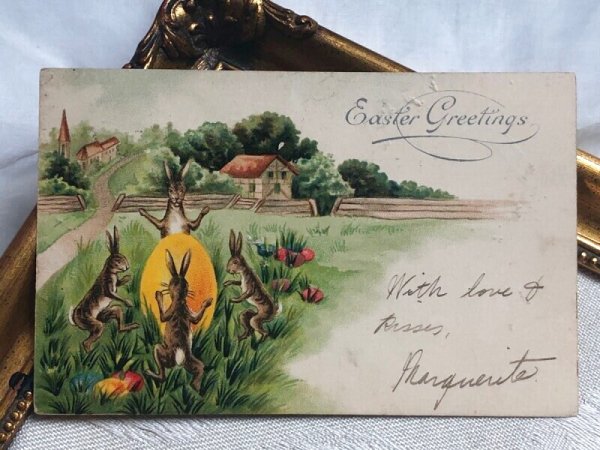 Easter Greetings
With love &
Kisses,
Marguerite.